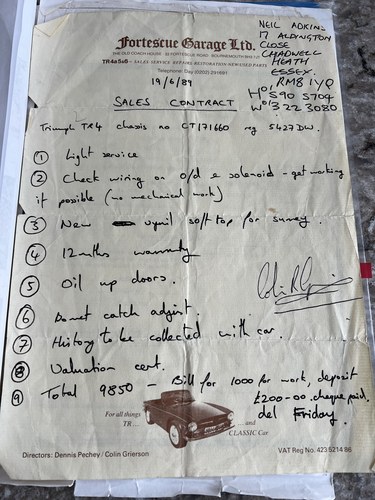 Fortescue Garage Ltd.
THE OLD COACH HOUSE · FORTESCUE ROAD · BOURNEMOUTH
TR4a5&6 – SALES SERVICE REPAIRS RESTORATION NEW/USED PARTS
Telephone: Day (0202)
NEIL ADKINS
17 ALDINGTON
CLOSE
CHADWELL
HEATH
ESSEX.
RM8 1YQ
H 01 590 5704
W 01 322 3080
19/6/89
SALES CONTRACT
Triumph TR4 chassis no CT171660 reg 5427DW.
① Light service
② Check wiring on o/d & solenoid – get working
if possible (no mechanical work)
③ New vynil soft top for surrey.
④ 12mths warranty
⑤ Oil up doors.
⑥ Bonnet catch adjust.
⑦ History to be collected with car.
⑧ Valuation cert.
⑨ Total 9850 – Bill for 1000 for work, deposit
£200-00 cheque paid.
del Friday.
For all things
TR ...
... and
CLASSIC Car
Directors: Dennis Pechey / Colin Grierson
VAT Reg No. 423 5214 86